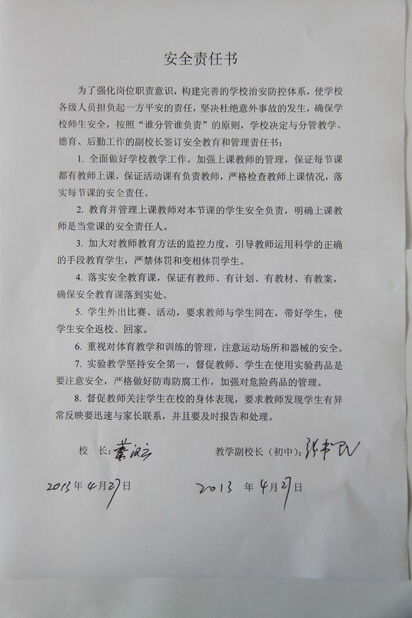 安全责任书
为了强化岗位职责意识，构建完善的学校治安防控体系，使学校
各级人员担负起一方平安的责任，坚决杜绝意外事故的发生，确保学
校师生安全，按照“谁分管谁负责”的原则，学校决定与分管教学、
德育、后勤工作的副校长签订安全教育和管理责任书：
1. 全面做好学校教学工作。加强上课教师的管理，保证每节课
都有教师上课，保证活动课有负责教师，严格检查教师上课情况，落
实每节课的安全责任。
2. 教育并管理上课教师对本节课的学生安全负责，明确上课教
师是当堂课的安全责任人。
3. 加大对教师教育方法的监控力度，引导教师运用科学的正确
的手段教育学生，严禁体罚和变相体罚学生。
4. 落实安全教育课，保证有教师、有计划、有教材、有教案，
确保安全教育课落到实处。
5. 学生外出比赛、活动，要求教师与学生同在，带好学生，使
学生安全返校、回家。
6. 重视对体育教学和训练的管理，注意运动场所和器械的安全。
7. 实验教学坚持安全第一，督促教师、学生在使用实验药品是
要注意安全，严格做好防毒防腐工作，加强对危险药品的管理。
8. 督促教师关注学生在校的身体表现，要求教师发现学生有异
常反映要迅速与家长联系，并且要及时报告和处理。
校 长： 教学副校长（初中）：
2013年4月27日 2013 年4月27日